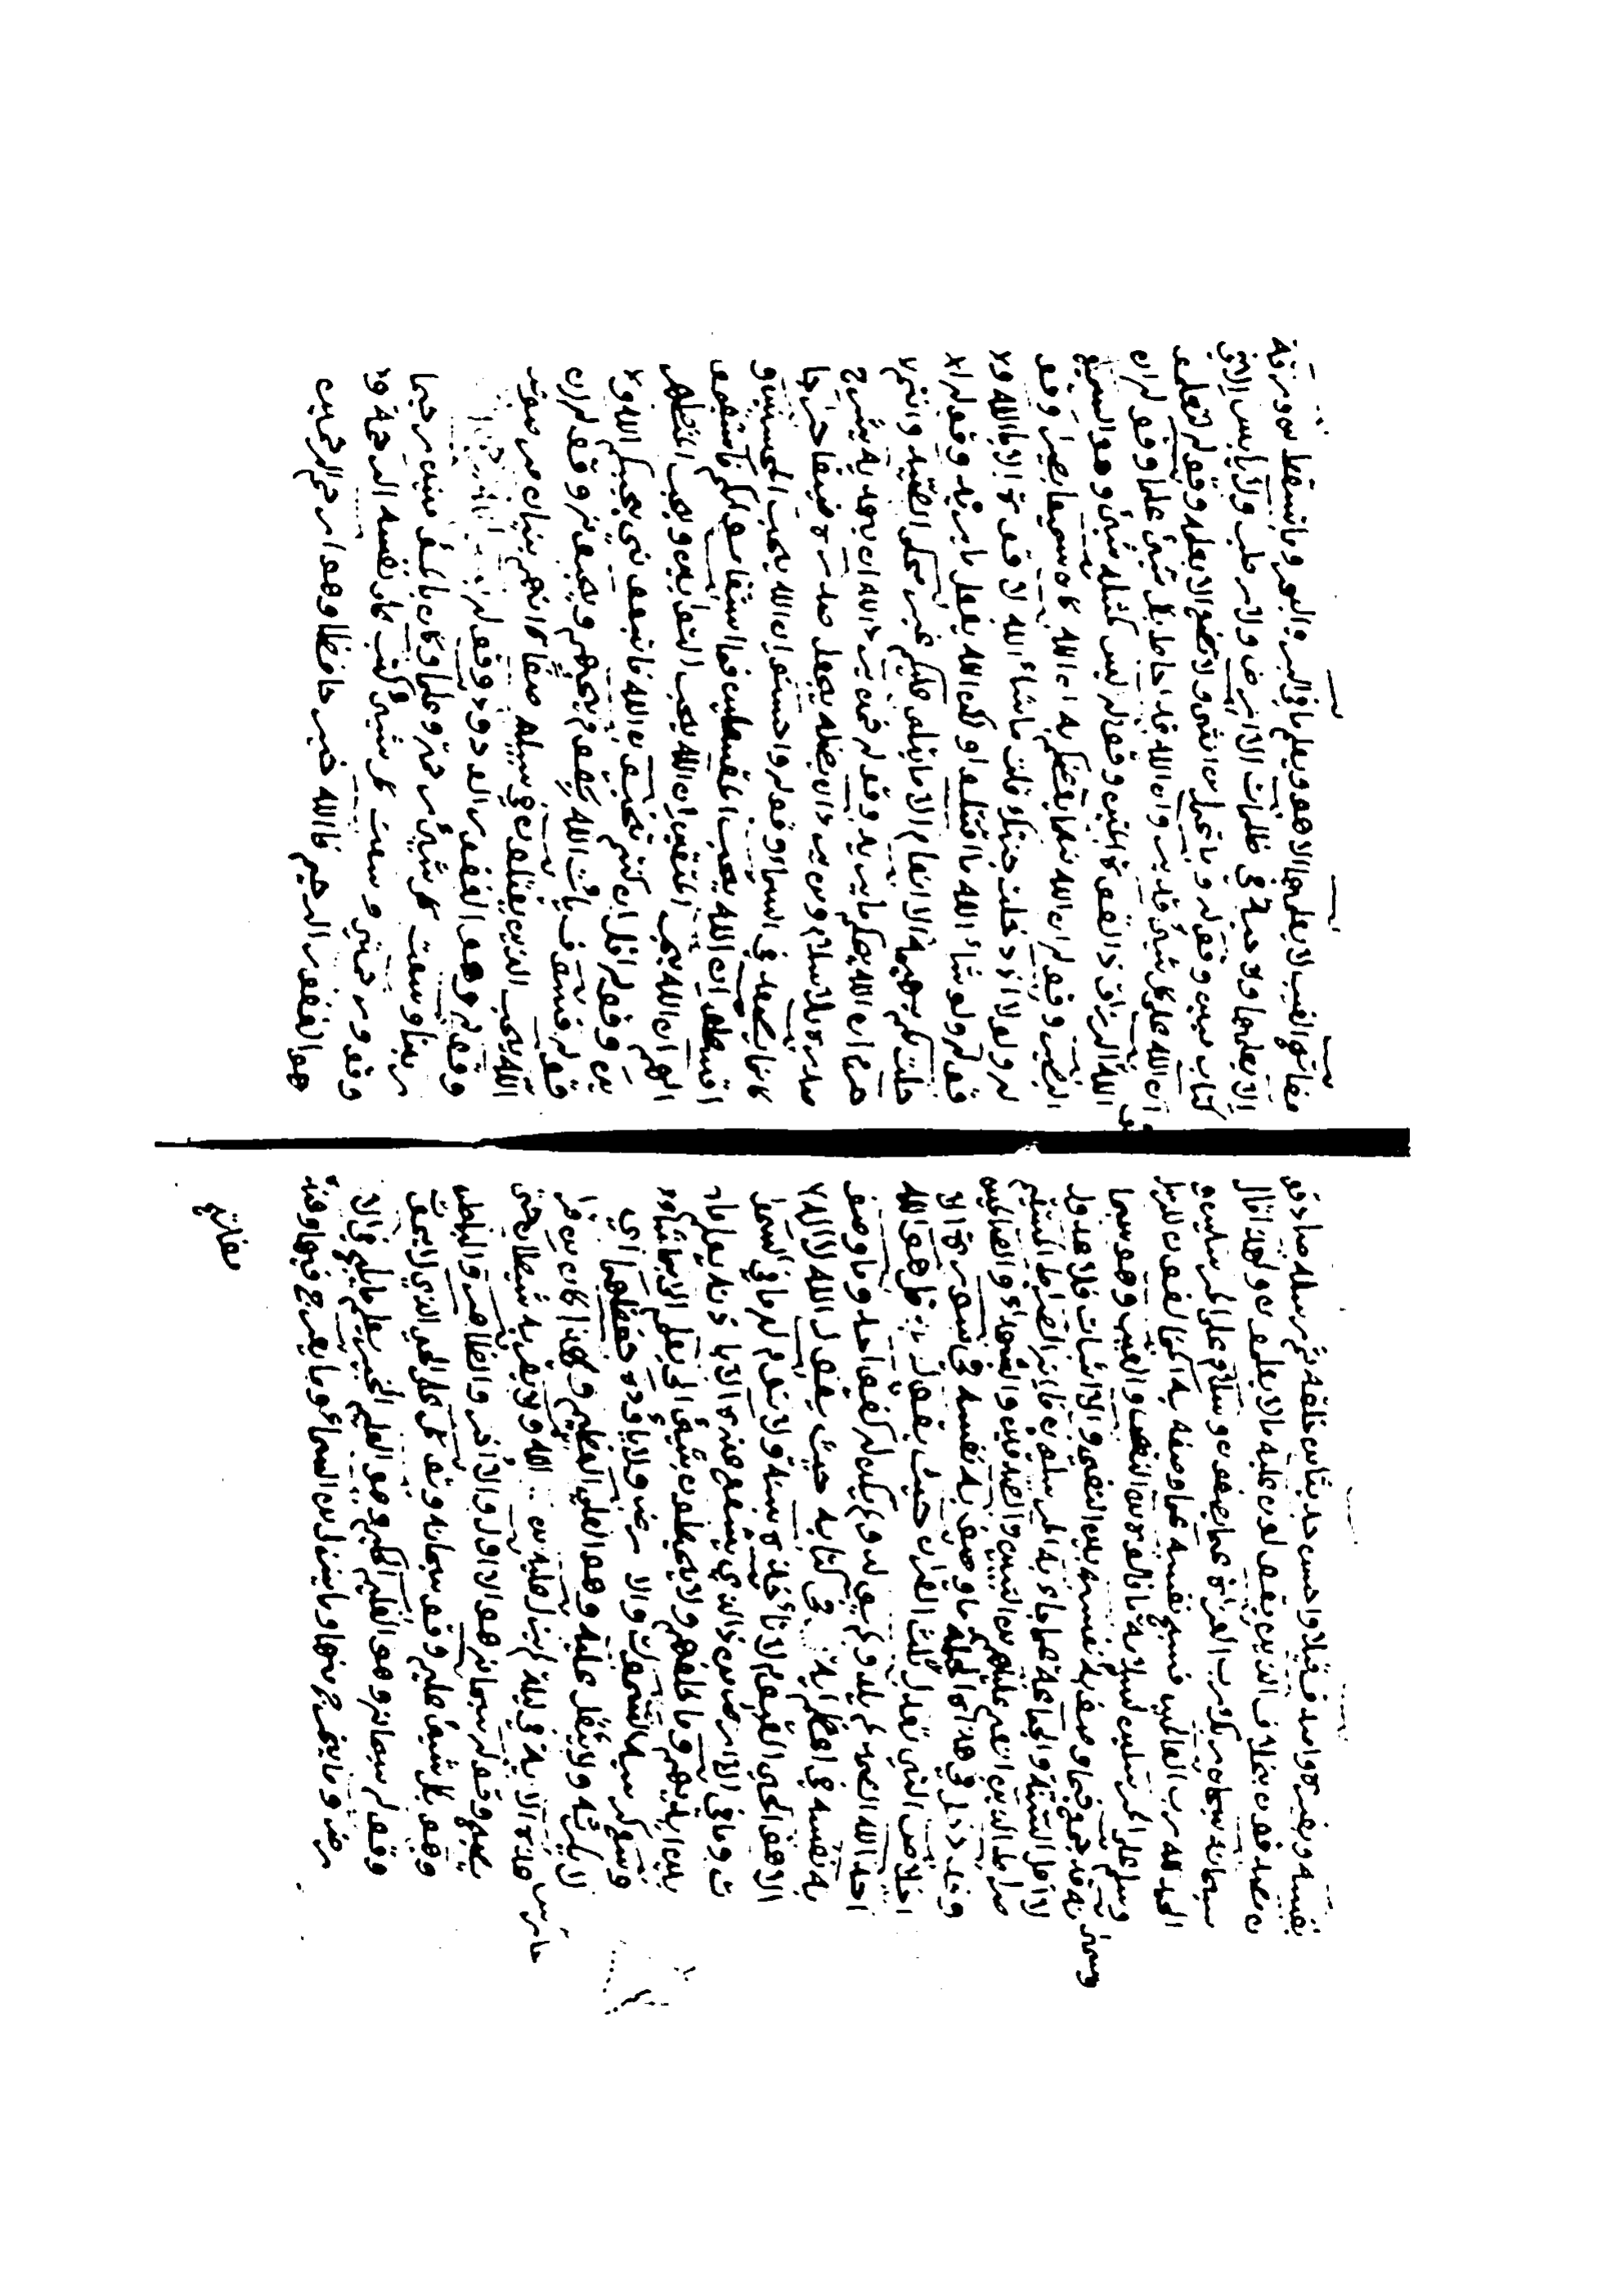 بنفسه وبغيره واصدق قيلا واحسن حديثا من خلقه ثم رسله صادقو
ن مصدقون بخلاف الذين يقولون عليه ما لا يعلمون ولهذا قال
سبحانه سبحان ربك رب العزة عما يصفون وسلام على المرسلين و
الحمد لله رب العالمين فسبح نفسه عما وصفه به المخالفون للرسل
وسلم على المرسلين لسلامة ما قالوه من النقص والعيب وهو سبحا
نه قد جمع فيما وصف به نفسه بين النفي والاثبات فلا عدول
وسمى
لاهل السنة والجماعة عما جاء به المرسلون فانه الصراط المستقيم
صراط الذين انعم عليهم من النبيين والصديقين والشهداء والصالحين
وقد دخل في هذه الجملة ما وصف به نفسه في سورة الا
اخلاص التي تعدل ثلث القران حيث يقول قل هو الله
احد الله الصمد لم يلد ولم يولد ولم يكن له كفوا احد وما وصف
به نفسه في اعظم اية في كتابه حيث يقول الله لا اله لا
الا هو الحي القيوم لا تأخذه سنة ولا نوم له ما في السموا
ت وما في الارض من ذا الذي يشفع عنده الا باذنه يعلم ما
بين ايديهم وما خلفهم ولا يحيطون بشيء الى الا بما شاء و
وسع كرسيه السموات والارض ولا يؤده حفظهما اي
لا يكرثه ولا يثقل عليه وهو العلي العظيم ولهذا كان من قرا
هذه الاية في ليلة لم يزل عليه من الله ولا يقربه شيطان حتى
حارس
يصبح وقوله سبحانه هو الاول والآخر والظاهر والباطن
وهو بكل شيء عليم وقوله سبحانه وتوكل على الحي الذي لا يموت
وقوله سبحانه وهو العليم الحكيم وهو العليم الخبير يعلم ما يلج في الا
رض وما يخرج منها وما ينزل من السماء وما يعرج فيها وعنده
مفاتح
مفاتح الغيب لا يعلمها الا هو ويعلم ما في البر والبحر وما تسقط من ورقة
الا يعلمها ولا حبة في ظلمات الارض ولا رطب ولا يابس الا في
كتاب مبين وقوله وما تحمل من انثى ولا تضع الا بعلمه وقوله لتعلمو
ان الله على كل شيء قدير وان الله قد احاط بكل شيء علما وقوله ان
الله هو الرزاق ذو القوة المتين وقوله ليس كمثله شيء وهو السميع
البصير وقوله ان الله نعما يعظكم به ان الله كان سميعا بصيرا وقو
له ولولا اذ دخلت جنتك قلت ما شاء الله لا قوة الا بالله ولا
قوله ولو شاء الله ما اقتتلوا ولكن الله يفعل ما يريد وقوله ا
حلت لكم بهيمة الانعام الا ما يتلى عليكم غير محلي الصيد وانتم
حرم ان الله يحكم ما يريد وقوله فمن يرد الله ان يهديه يشرح
صدره للاسلام ومن يرد ان يضله يجعل صدره ضيقا حرجا
كانما يصعد في السماء وقوله واحسنوا ان الله يحب المحسنين و
اقسطوا ان الله يحب المقسطين فما استقاموا لكم فاستقيموا
لهم ان الله يحب المتقين ان الله يحب التوابين ويحب المتطهر
ين وقوله قل ان كنتم تحبون الله فاتبعوني يحببكم الله و
قوله فسوف يأتي الله بقوم يحبهم ويحبونه وقوله ان
الله يحب الذين يقاتلون في سبيله صفا كانهم بنيان مرصوص
وقوله وهو الغفور الودود وقوله
ربنا وسعت كل شيء رحمة وعلما وكان بالمؤمنين رحيما
وقوله ورحمتي وسعت كل شيء كتب على نفسه الرحمة و
هو الغفور الرحيم فالله خير حافظا وهو ارحم الراحمين